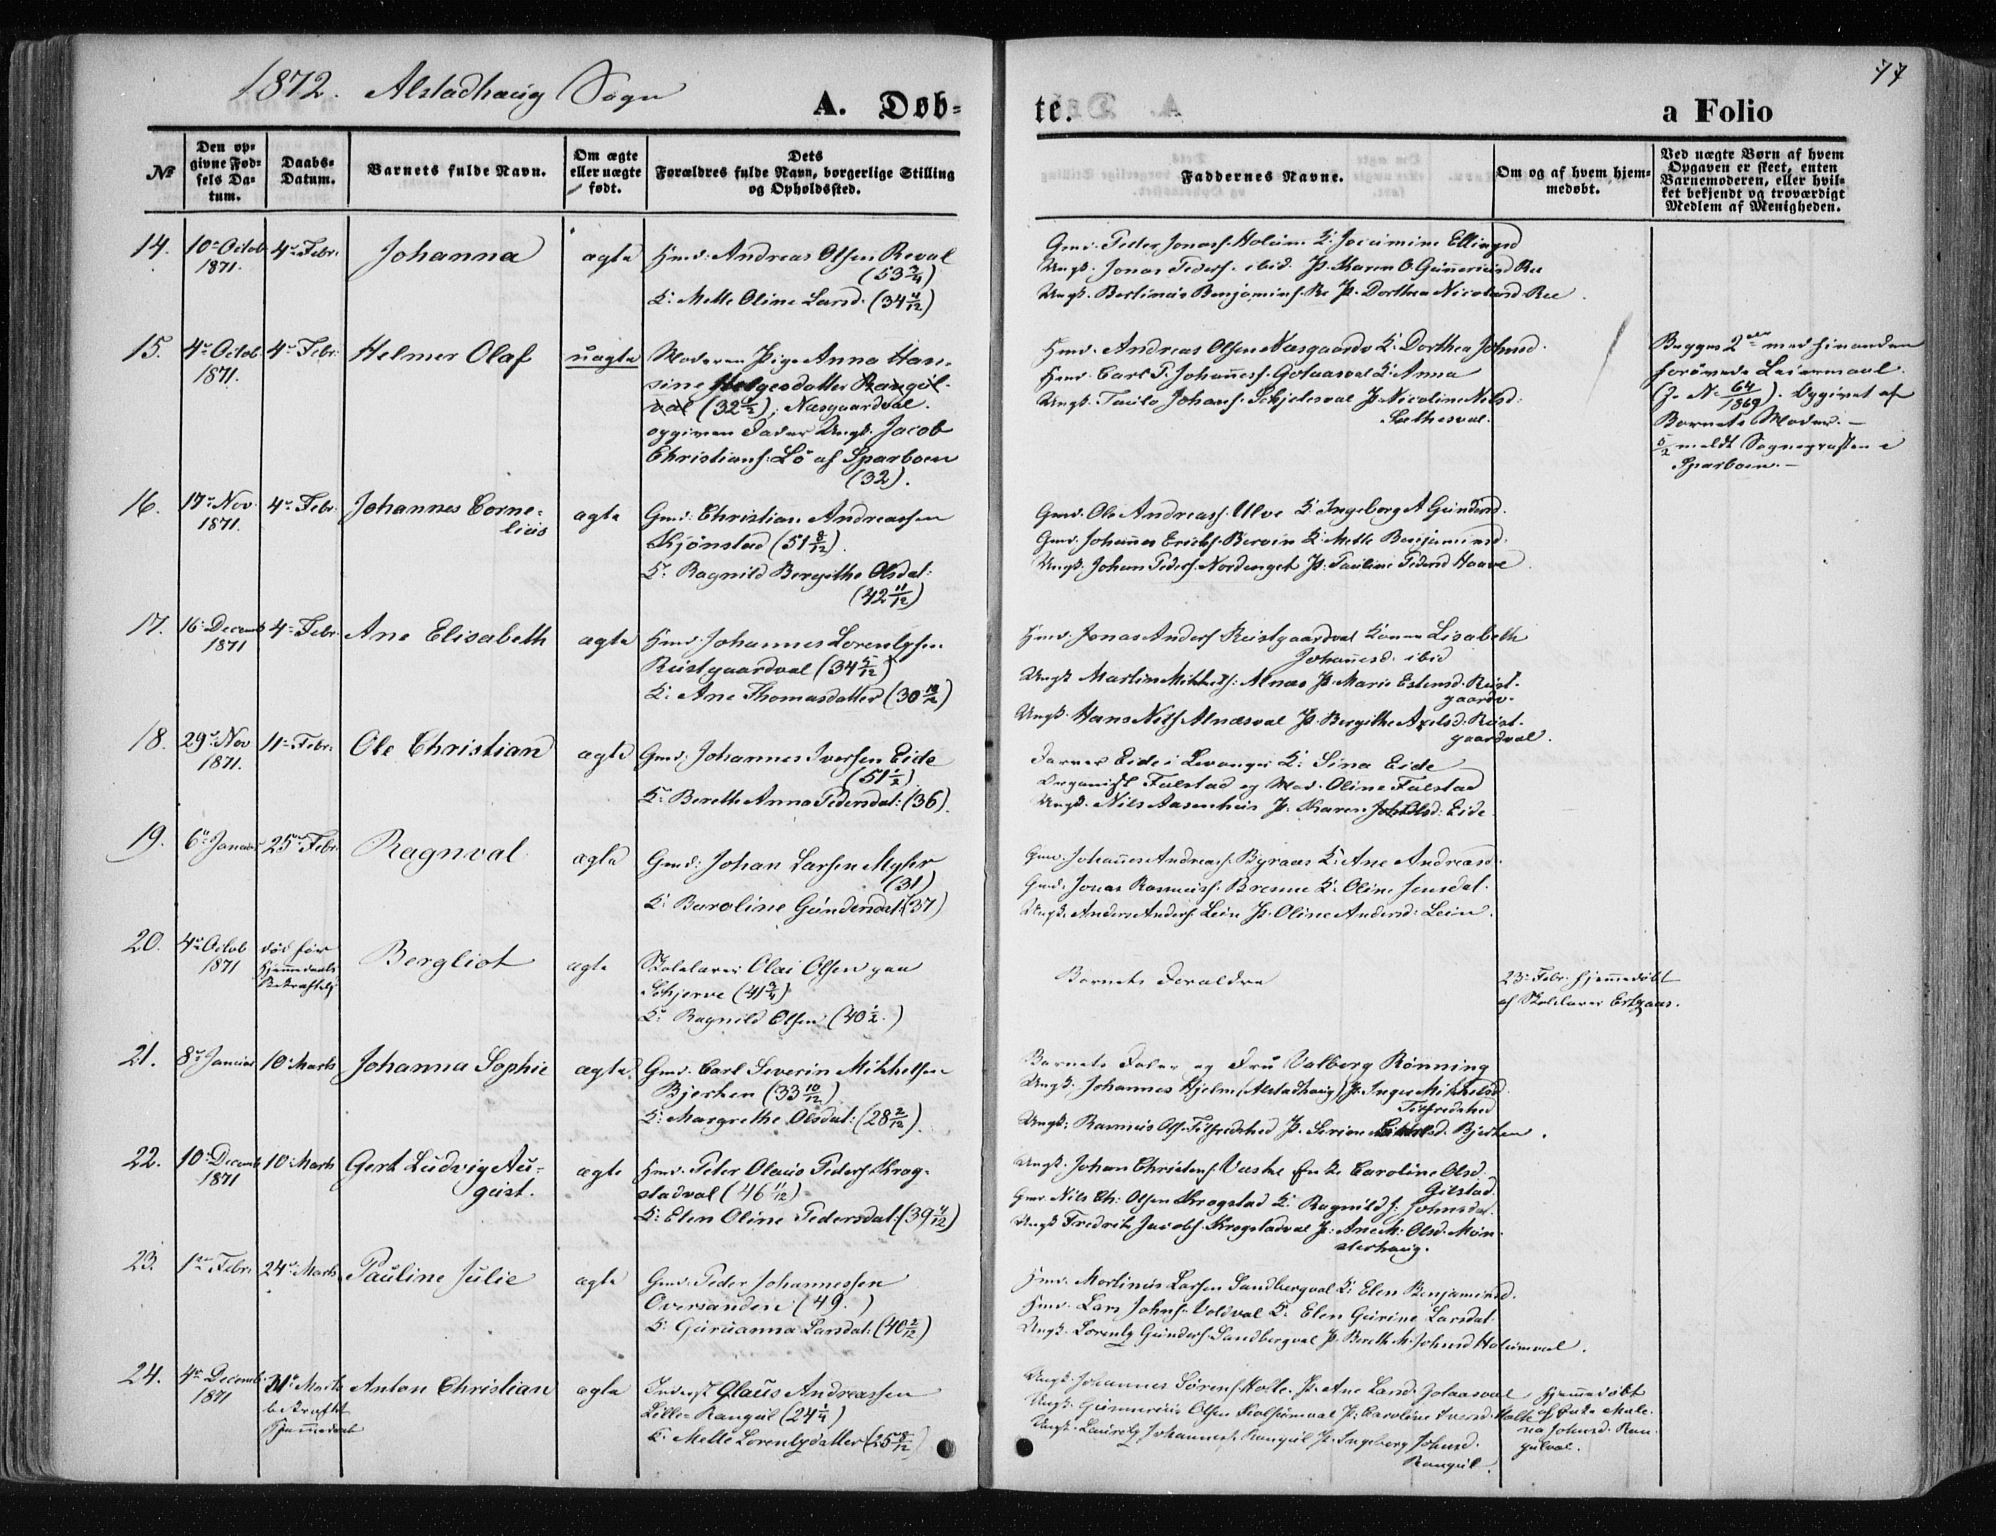 1872. Alstadhaug Sogn
A. Døb-
te.
a Folio
77
№
Den op-
givne Fød-
sels Da-
tum.
Daabs-
Datum.
Barnets fulde Navn.
Om ægte
eller uægte
født.
Dets
Forældres fulde Navn, borgerlige Stilling
og Opholdssted.
Faddernes Navne.
Om og af hvem hjem-
medøbt.
Ved uægte Børn af hvem
Opgaven er skeet, enten
Barnemoderen, eller hvil-
ket bekjendt og troværdigt
Medlem af Menigheden.
14.
10de Octob
1871.
4de Febr.
Johanna
ægte
Hmd: Andreas Olsen Reval
(53 3/4)
K: Mette Oline Larsd. (34 4/12)
Gmd. Peder Jonass. Holum K. Jocumine Ellingsd
Ungk. Jonas Peders. ibid. P. Karen O. Gunneriusd Ree
Ungk. Bertinus Benjamins. Re P. Dorthea Nicolaisd Ree
15.
4de Octob
1871.
4de Febr.
Helmer Olaf
uægte
Moderen Pige Anna Han-
sine Helgesdatter Rangul-
val (32 1/2), Næsgaardval.
opgiven Fader Ungk. Jacob
Christians: Lø af Sparboen
(32).
Hmd. Andreas Olsen Næsgaardv K. Dorthea Johnsd.
Hmd. Carl P. Johanness. Golaasval K. Anna
Ungk. Paulo Johans. Schjelsval P. Nicoline Nilsd.
Salthesval.
Begges 2den med hinanden
forøvede Leiermaal.
(J. No 64/1869). Opgivet af
Barnets Moder. -
5/2 meldt Sognepræsten i
Sparboen. -
16.
17de Nov.
1871.
4de Febr.
Johannes Corne-
lius
ægte
Gmd: Christian Andreassen
Kjønstad (51 8/12).
K: Ragnild Bergithe Olsdat:
(42 11/12)
Gmd. Ole Andreass. Ulve K. Ingeborg A Gundersd.
Gmd. Johannes Ericks. Bervin K. Mette Benjaminsd.
Ungk. Johan Peders. Nordenget P. Pauline Pedersd Haave
17.
16de Decemb
1871
4de Febr.
Ane Elisabeth
ægte
Hmd: Johannes Lorentzsen
Reistgaardval (34 5/12)
K: Ane Thomasdatter (30 10/12)
Hmd: Jonas Anders. Reistgaardval Konen Lisabeth
Johannesd. ibid
Ungk Martin Mikkels: Alnæs P. Marie Estensd. Reist-
gaardv.
Ungk. Hans Nels. Alnæsval P. Bergithe Axelsd. Reist-
gaardval.
18.
29de Nov
1871.
11te Febr.
Ole Christian
ægte
Gmd: Johannes Iversen Eide
(51 1/2)
K: Bereth Anna Pedersdat: (36).
Farver Eide i Levanger K: Sina Eide
Organist Falstad og Mad. Oline Falstad
Ungk. Nils Aasenhus P. Karen Eide
19.
6te Januar
25de Febr.
Ragnval
ægte
Gmd: Johan Larsen Myhr
(31)
K: Baroline Gundersdat: (37)
Gmd. Johannes Andreass. Byraas K. Ane Andreasd.
Gmd. Jonas Rasmuss. Brenne K. Oline Jensdat.
Ungk. Anders Anders. Lein P. Oline Andersd. Lein.
20.
4de Octob
1871
død før
Hjemmedaabs
Bekræftels
Bergliot
ægte
Skolelærer Olai Olsen paa
Schjerve (41 3/4)
K: Ragnild Olsen (40 1/2)
Barnets Forældre
23de Febr. hjemmedøbt
af Skolelærer Ertzaas.
21.
8de Januar
10de Marts
Johanna Sophie
ægte
Gmd: Carl Severin Mikkelsen
Bjerken (33 10/12)
K: Margrethe Olsdat: (28 2/12)
Barnets Fader og Fru Valborg Rønning
Ungk. Johannes Hjelm (Alstadhaug) P. Inger Mikkelsd.
Tilfredshed
Ungk: Rasmus Ols. Tilfredshed P. Serine Bjerken.
22.
10de Decemb
1871
10de Marts
Gert Ludvig Au-
gust.
ægte
Hmd: Peter Olaus Peders. Krog-
stadval (46 11/12)
K: Elen Oline Pedersdat: (39 4/12)
Ungk. Johan Christens. Vaske Enke Caroline Olsd
Gilstad.
Gmd. Nils Ch: Olsen Krogstad K. Ragnild J: Johnsdat.
Ungk Fredrik Jacobs. Krogstadval P: Ane M: Olsd. Mun-
sterhaug.
23.
1ste Febr.
24de Marts
Pauline Julie
ægte
Gmd: Peder Johannessen
Oversanden (49.)
K: Guruanna Larsdat: (40 2/12)
Hmd. Martinus Larsen Sandbergval K. Elen Benjaminsd.
Hmd. Lars Johns. Voldval K. Elen Gurine Larsdat
Ungk. Lorentz Gunders. Sandbergval P. Bereth M. Johnsd Holumval.
24.
4de Decemb.
1871
31te Marts
bekræftet
Hjemmedaab
Anton Christian
ægte
Inderst Olaus Andreassen
Lille-Rangul (24 1/4)
K. Mette Lorentzdatter (25 8/12)
Ungk. Johannes Sørens. Holte. P. Ane Land. Jolaasval
Ungk. Gunnerius Olsen Kolhumval P. Caroline Iversd. Holte
Ungk. Lauritz Johanness. Rangul P. Ingeborg Johnsd.
Rangul.
Hjemmedøbt
af Enke Male-
na Johnsd. Ran-
gulval.